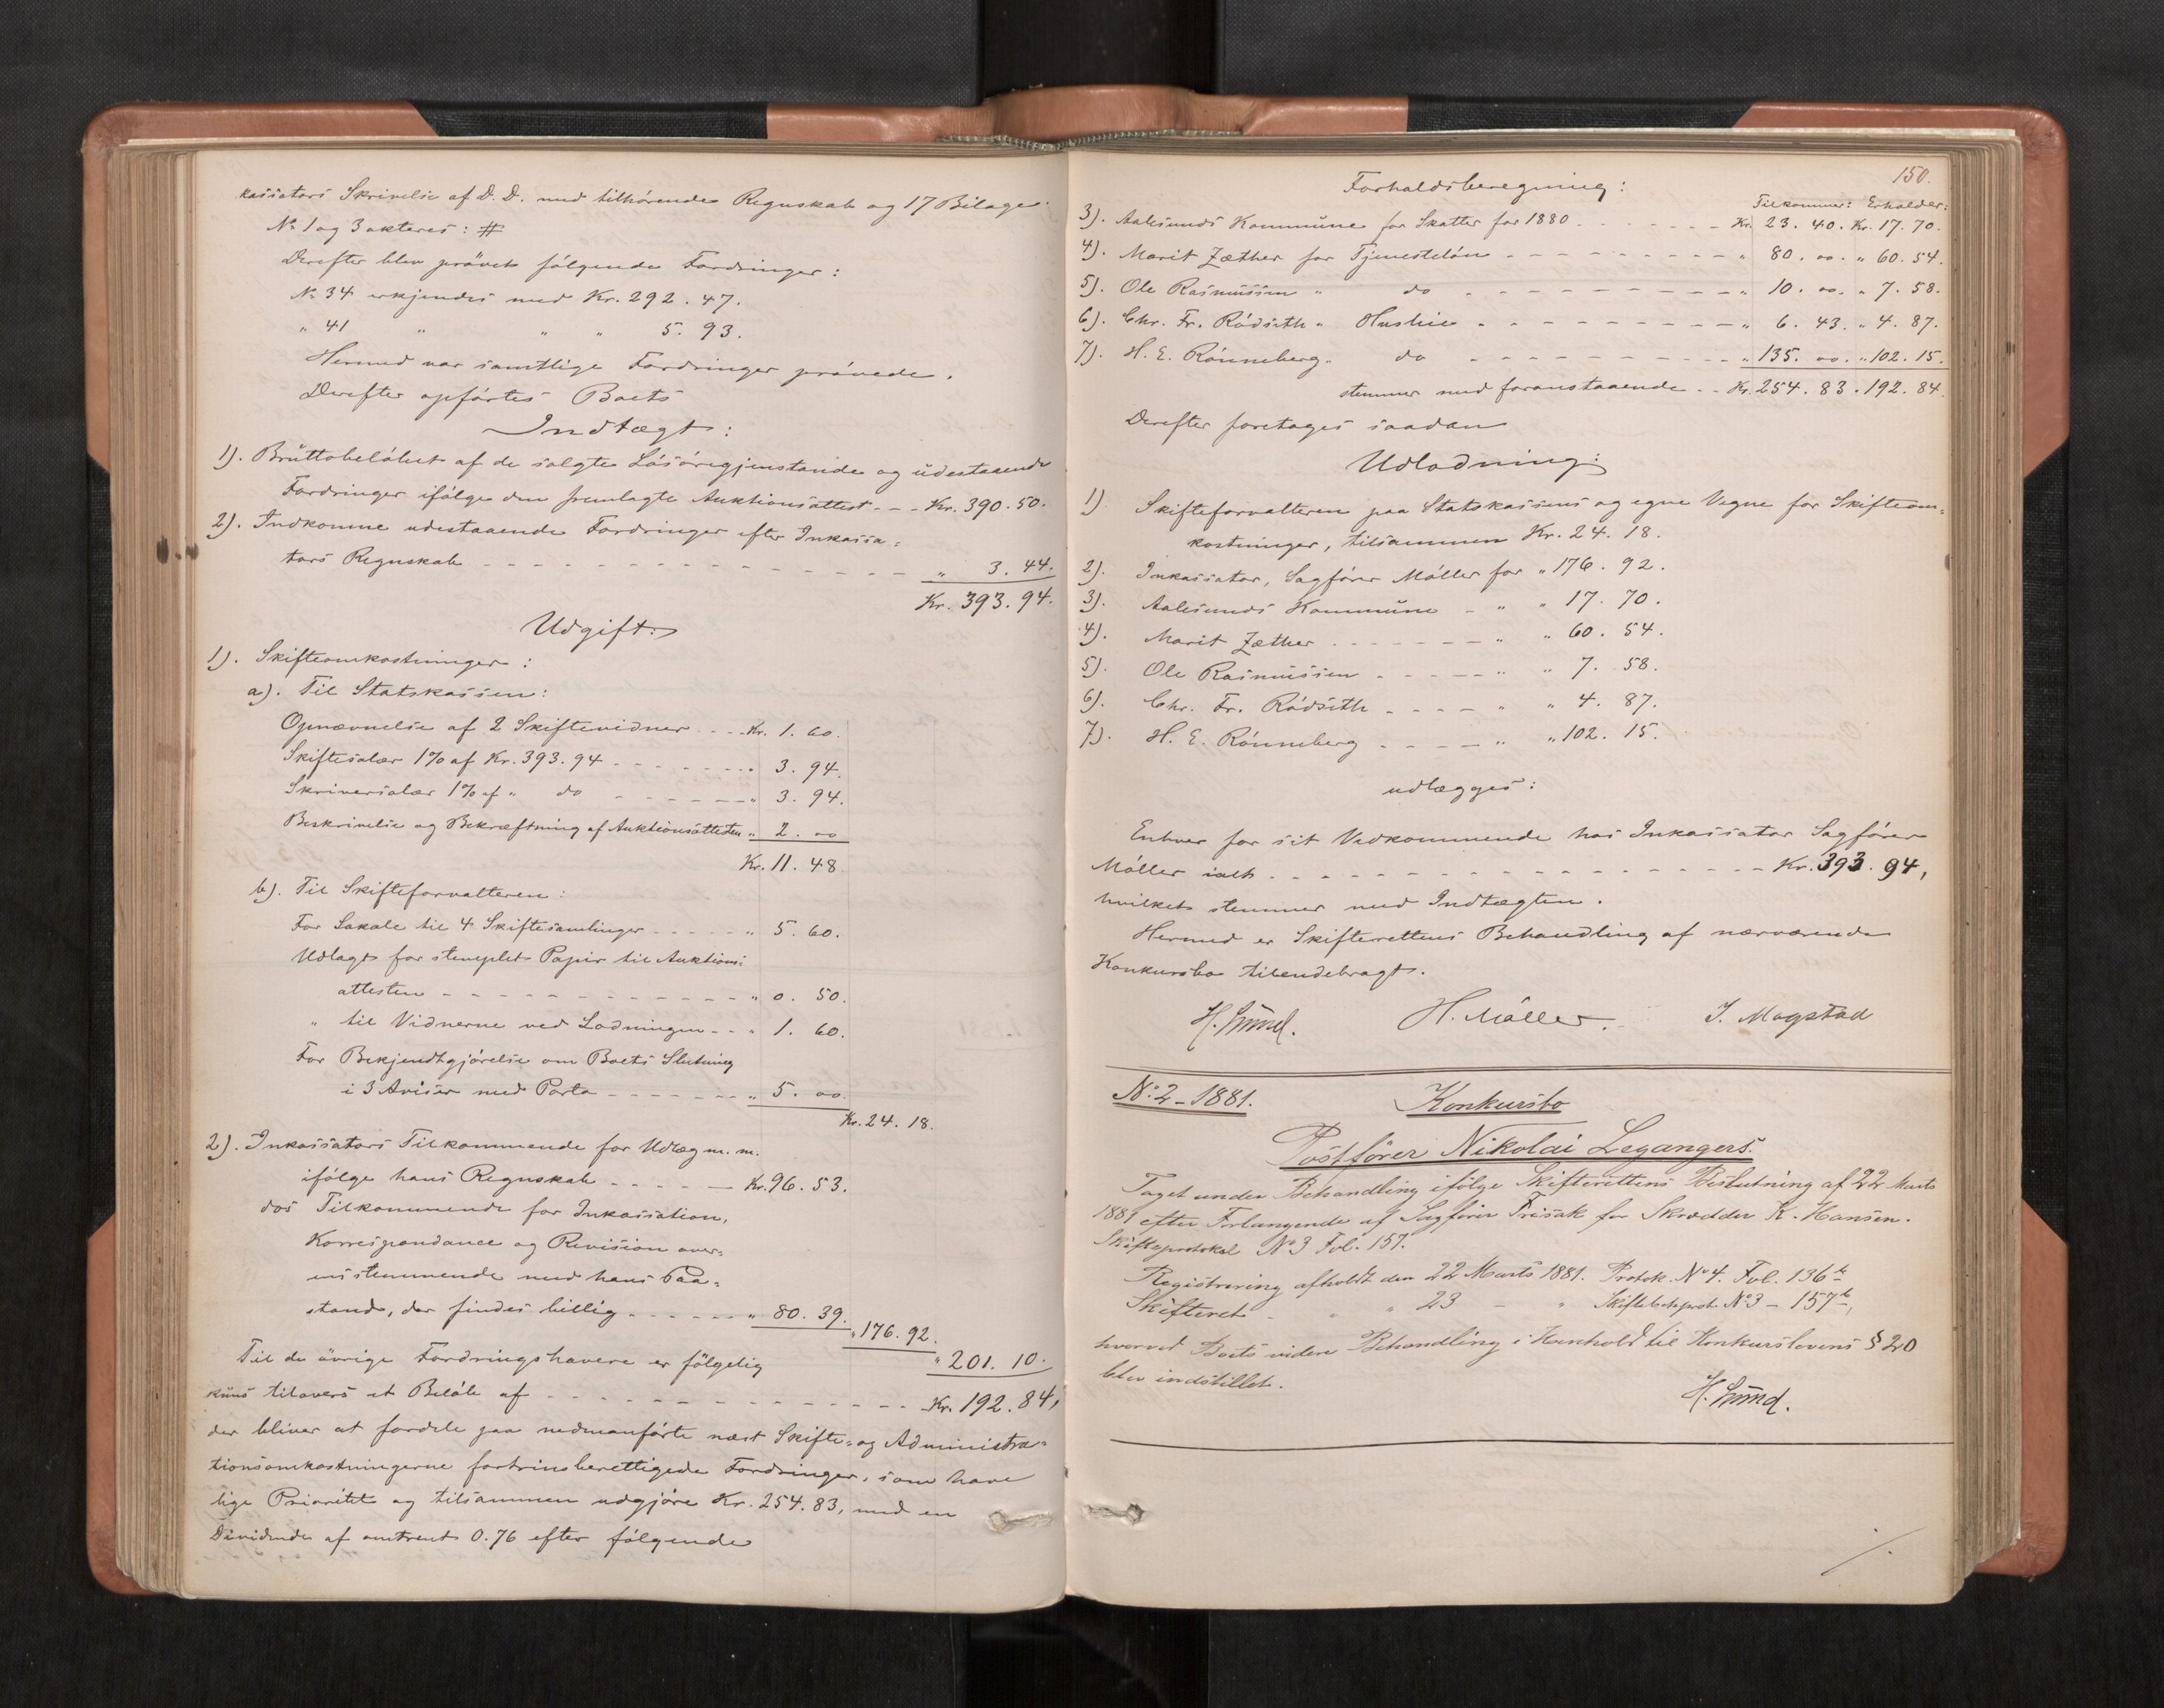 kassators Skrivelse af D. D. med tilhörende Regnskab og 17 Bilage.
No 1 og 3 akteres: #
Derefter blev prövet fölgende Fordringer:
No 34 erkjendes med Kr. 292.47.
" 41 " " " 5.93.
Hermed var samtlige Fordringer prövede.
Derefter opförtes Boets
Indtægt:
1). Bruttobelöbet af de solgte Lösöregjenstande og udestaaende
Fordringer ifölge den fremlagte Auktionsattest - - - Kr. 390.50.
2). Indkomne udestaaende Fordringer efter Inkassa=
tors Regnskab - - - " 3.44.
Kr. 393.94.
Udgift:
1). Skifteomkostninger:
a). Til Statskassen:
Opnævnelse af 2 Skiftevidner - - - Kr. 1.60.
Skiftesalær 1% af Kr. 393.94 - - - " 3.94.
Skriversalær 1% af " do - - - " 3.94.
Beskrivelse og Bekræftning af Auktionsattesten " 2.00
Kr. 11.48
b). Til Skifteforvalteren:
For Lokale til 4 Skiftesamlinger - - - " 5.60.
Udlagt for stemplet Papir til Auktions=
attesten - - - " 0.50.
" til Vidnerne ved Lodningen - - " 1.60.
For Bekjendtgjörelse om Boets Slutning
i 3 Aviser med Porto - - - " 5.00.
Kr. 24.18.
2). Inkassators Tilkommende for Udlæg m. m.
ifölge hans Regnskab - - - Kr. 96.53.
dos Tilkommende for Inkassation,
Korrespondance og Revision over=
ensstemmende med hans Paa=
stand, der findes billig - - - " 80.39.
" 176.92.
" 201.10.
Til de övrige Fordringshavere er fölgelig
kuns tilovers et Belöb af - - - Kr. 192.84,
der bliver at fordele paa nedenanförte næst Skifte- og Administra=
tionsomkostningerne fortrinsberettigede Fordringer, som have
lige Prioritet og tilsammen udgjöre Kr. 254.83, med en
Dividende af omtrent 0.76 efter fölgende
150.
Forholdsberegning:
Tilkommer: Erholder:
3). Aalesunds Kommune for Skatter for 1880 - - - Kr. 23.40. Kr. 17.70.
4). Marit Zæther for Tjenestelön - - - " 80.00. " 60.54.
5). Ole Rasmussen " do - - - " 10.00. " 7.58.
6). Chr. Fr. Rödseth " Husleie - - - " 6.43. " 4.87.
7). H. E. Rönneberg " do - - - " 135.00. " 102.15.
stemmer med foranstaaende - - Kr. 254.83. 192.84.
Derefter foretages saadan
Udlodning:
1) Skifteforvalteren paa Statskassens og egne Vegne for Skifteom=
kostninger, tilsammen Kr. 24.18.
2). Inkassator, Sagförer Möller for " 176.92.
3). Aalesunds Kommune - " " 17.70.
4). Marit Zæther - - - " " 60.54.
5). Ole Rasmussen - - - " " 7.58.
6). Chr. Fr. Rödseth - - - " " 4.87.
7). H. E. Rönneberg - - - " " 102.15.
udlægges:
Enhver for sit Vedkommende hos Inkassator Sagförer
Möller ialt - - - Kr. 393.94,
hvilket stemmer med Indtægten.
Hermed er Skifterettens Behandling af nærværende
Konkursbo tilendebragt.
H. Lund. H. Möller. I. Mogstad
No: 2 - 1881. Konkursbo
Postförer Nikolai Legangers.
Taget under Behandling ifölge Skifterettens Beslutning af 22 Marts
1881 efter Forlangende af Sagförer Frisak for Skrædder K. Hansen.
Skifteprotokol No 3 Fol. 157.
Registrering afholdt den 22 Marts 1881. Protok. No 4. Fol. 136 b
Skifteret - " " 23 - " No 3 - 157 b,
hvorved Boets videre Behandling i Henhold til Konkurslovens § 20
blev indstillet.
H. Lund.